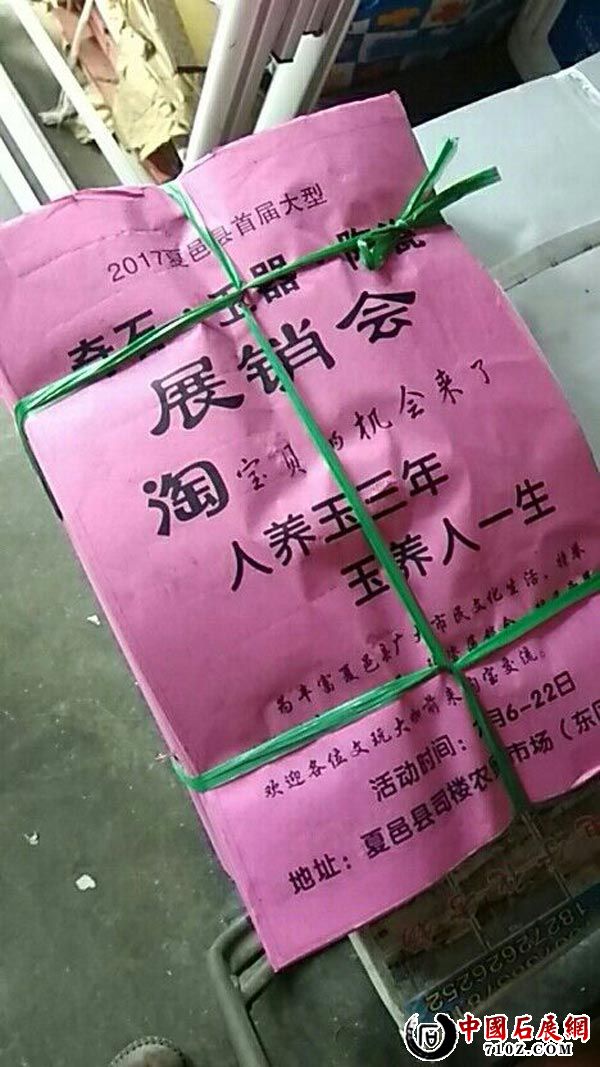 2017夏邑县首届大型
奇石·玉器 陶瓷
展销会
淘宝贝的机会来了
人养玉三年
玉养人一生
为丰富夏邑县广大市民文化生活,特举
欢迎各位文玩大咖前来淘宝交流。
活动时间: 月6-22日
地址:夏邑县司楼农贸市场(东
18272626252
中國石展網
710Z.COM